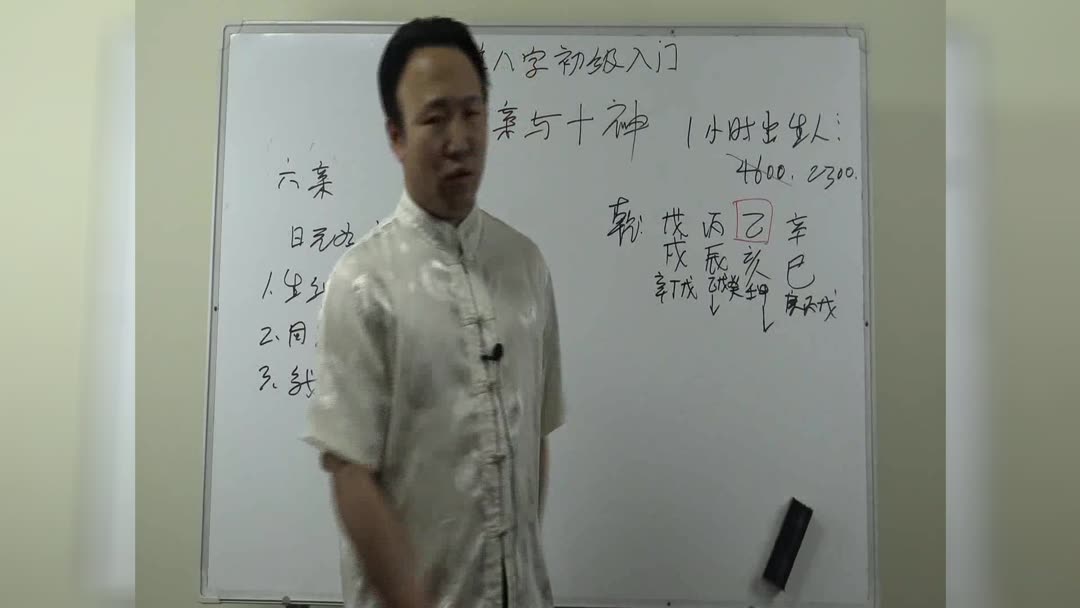 八字初级入门
亲与十神
1小时出生人：
4600. 2300.
六亲
日元为
1. 生
2. 同
3. 我
乾: 戊 丙 乙 辛
戌 辰 亥 巳
辛丁戊 乙戊癸 壬甲 庚丙戊